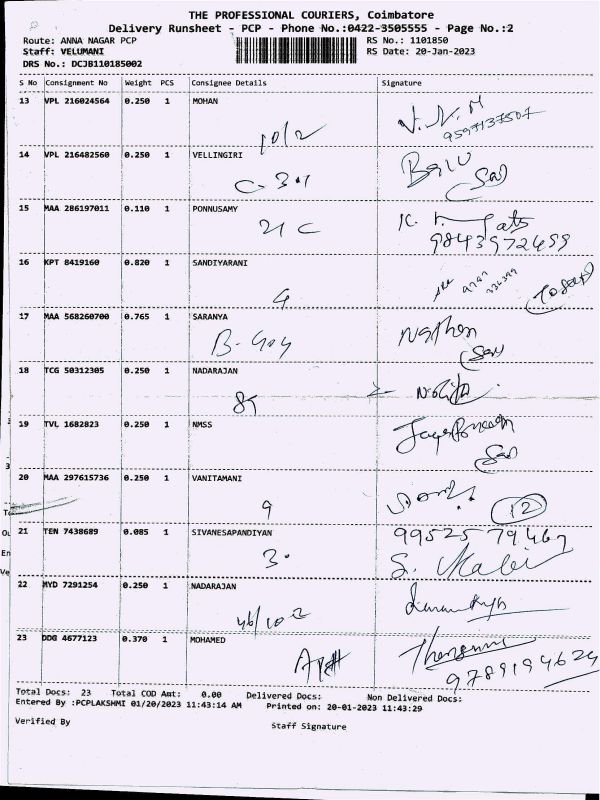 THE PROFESSIONAL COURIERS, Coimbatore
Delivery Runsheet - PCP - Phone No.:0422-3505555 - Page No.:2
Route: ANNA NAGAR PCP RS No.: 1101850
Staff: VELUMANI RS Date: 20-Jan-2023
DRS No.: DCJB110185002
S No Consignment No Weight PCS Consignee Details Signature
13 VPL 216024564 0.250 1 MOHAN
10/2 9597137507
14 VPL 216482560 0.250 1 VELLINGIRI
C-301 Balu
15 MAA 286197011 0.110 1 PONNUSAMY
21 C 9843972459
16 KPT 8419160 0.820 1 SANDIYARANI
G
17 MAA 568260700 0.765 1 SARANYA
B-404 Nathon
18 TCG 50312305 0.250 1 NADARAJAN
85
19 TVL 1682823 0.250 1 NMSS
20 MAA 297615736 0.250 1 VANITAMANI
9 12
21 TEN 7438689 0.085 1 SIVANESAPANDIYAN 9952579467
3.
22 MYD 7291254 0.250 1 NADARAJAN
46/102
23 DDG 4677123 0.370 1 MOHAMED
9789194624
Total Docs: 23 Total COD Amt: 0.00 Delivered Docs: Non Delivered Docs:
Entered By :PCPLAKSHMI 01/20/2023 11:43:14 AM Printed on: 20-01-2023 11:43:29
Verified By Staff Signature